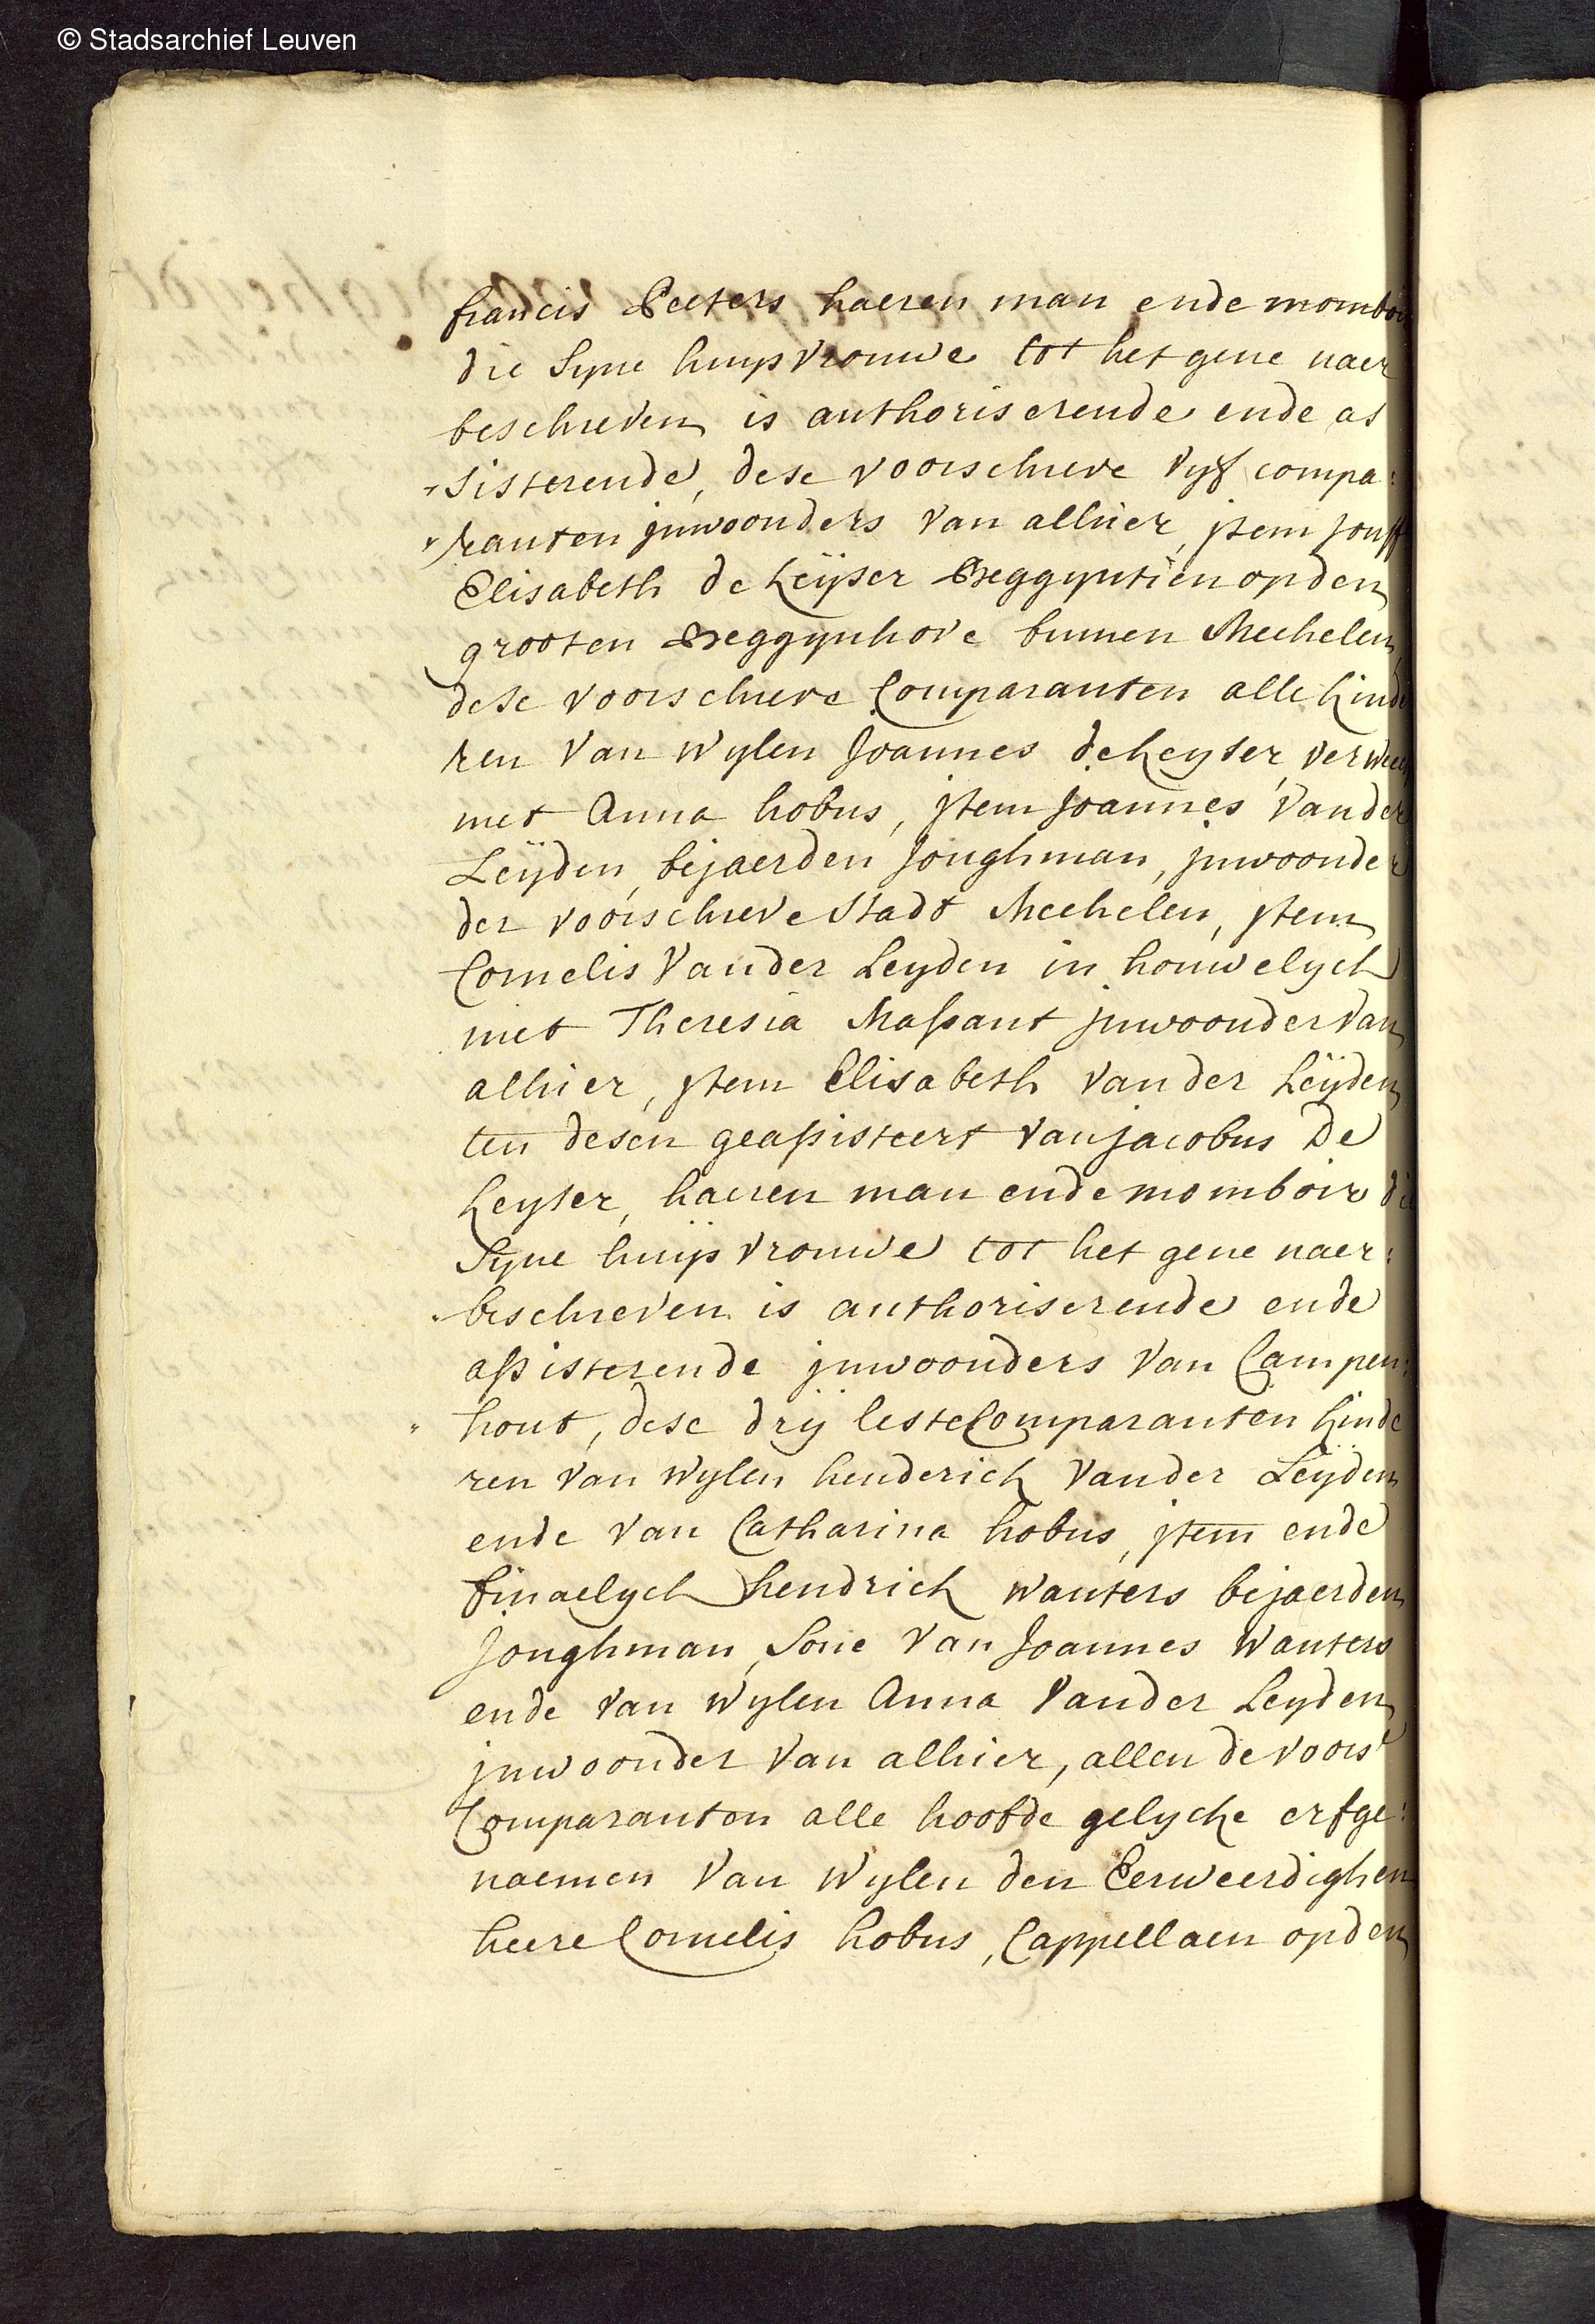 © Stadsarchief Leuven
francis Peeters haeren man ende momboi
die Syne huijsvrouwe tot het gene naer
beschreven is authoriserende ende as
sisterende, dese voorschreve vijf compa:
ranten jnwoonders van alhier, jtem Jouff
Elisabeth de Keijser Beggyntien op den
grooten Beggynhove binnen Mechelen,
dese voorschreve Comparanten alle kinde
ren van wylen Joannes de Keyser, verweckt
met Anna hobus, jtem Joannes Vander
Leijden, bejaerden Jonghman, jnwoonder
der voorschreve stadt Mechelen, jtem
Cornelis Vander Leyden in houwelyck
met Theresia Massant jnwoonder van
alhier, jtem Elisabeth Vander Leijden
ten desen geassisteert van jacobus De
Keyser, haeren man ende momboir die
Syne huijsvrouwe tot het gene naer:
beschreven is authoriserende ende
assisterende jnwoonders van Campen:
hout, dese drij leste Comparanten kinde
ren van wylen henderick Vander Leijden
ende van Catharina hobus, jtem ende
finaelyck hendrick Wauters bejaerden
Jonghman, Sone van Joannes Wauters
ende van wylen Anna Vander Leyden
jnwoonder van alhier, allen de voors.
Comparanten alle hoofde gelycke erfge:
naemen van wylen den Eerweerdighen
heere Cornelis hobus, Cappellaen op den